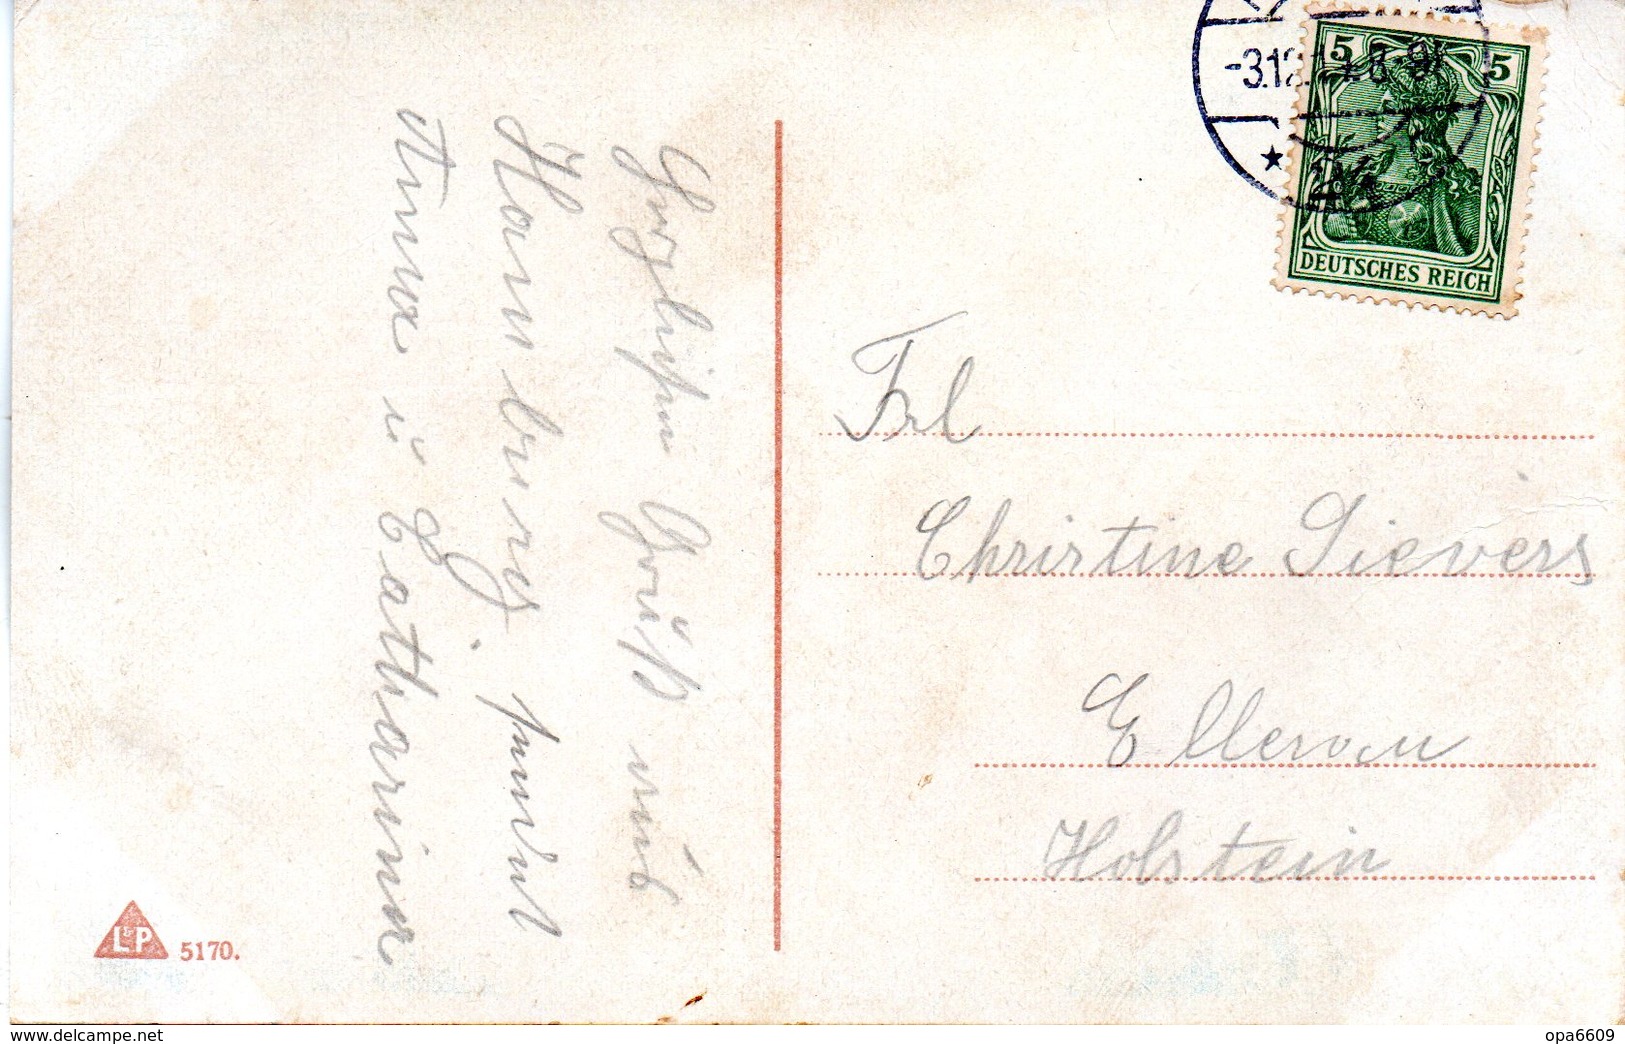 Herzlichen Gruß aus
Hamburg. sendet
Anna u Catharina
-3.12. 8-9
5 5
DEUTSCHES REICH
Frl
Christine Sievers
Ellerau
Holstein
L&P 5170.
www.delcampe.net
opa6609